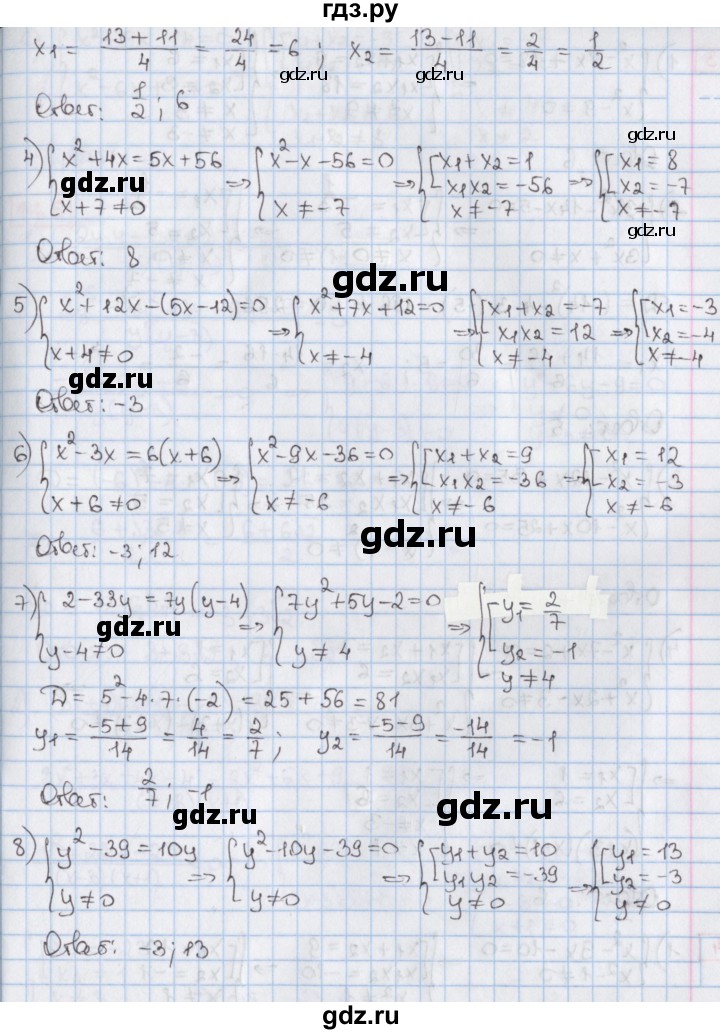 гдз.ру
x₁ = (13+11)/4 = 24/4 = 6 ; x₂ = (13-11)/4 = 2/4 = 1/2
gdz.ru gdz.ru
Ответ: 1/2 ; 6
gdz.ru
4) { x²+4x=5x+56 ; x+7≠0 => { x²-x-56=0 ; x≠-7 => { [ x₁+x₂=1 ; x₁x₂=-56 ; x≠-7 => { [ x₁=8 ; x₂=-7 ; x≠-7
gdz.ru gdz.ru
Ответ: 8
gdz.ru
5) { x²+12x-(5x-12)=0 ; x+4≠0 => { x²+7x+12=0 ; x≠-4 => { [ x₁+x₂=-7 ; x₁x₂=12 ; x≠-4 => { [ x₁=-3 ; x₂=-4 ; x≠-4
gdz.ru gdz.ru
Ответ: -3
6) { x²-3x=6(x+6) ; x+6≠0 => { x²-9x-36=0 ; x≠-6 => { [ x₁+x₂=9 ; x₁x₂=-36 ; x≠-6 => { [ x₁=12 ; x₂=-3 ; x≠-6
gdz.ru gdz.ru
Ответ: -3 ; 12
gdz.ru
7) { 2-33y=7y(y-4) ; y-4≠0 => { 7y²+5y-2=0 ; y≠4 => { [ y₁=2/7 ; y₂=-1 ; y≠4
gdz.ru gdz.ru
D = 5²-4·7·(-2) = 25+56 = 81
y₁ = (-5+9)/14 = 4/14 = 2/7 ; y₂ = (-5-9)/14 = -14/14 = -1
Ответ: 2/7 ; -1
gdz.ru gdz.ru
8) { y²-39=10y ; y≠0 => { y²-10y-39=0 ; y≠0 => { [ y₁+y₂=10 ; y₁y₂=-39 ; y≠0 => { [ y₁=13 ; y₂=-3 ; y≠0
gdz.ru gdz.ru
Ответ: -3 ; 13
gdz.ru